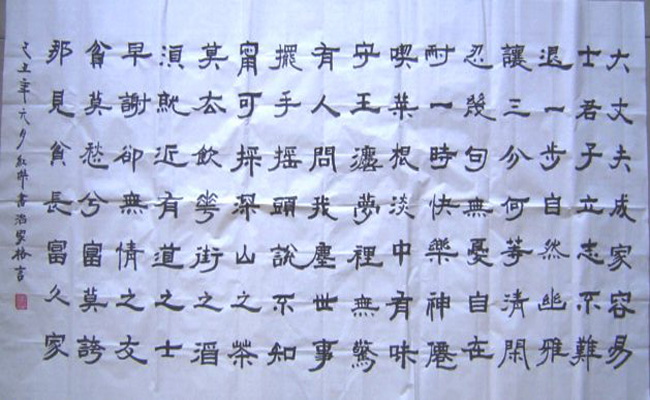 大丈夫成家容易
士君子立志不難
退一步自然幽雅
讓三分何等清閑
忍幾句無憂自在
耐一時快樂神僊
喫菜根淡中有味
守王灋夢裡無驚
有人問我塵世事
擺手搖頭說不知
甯可採深山之茶
莫去飲華街之酒
須就近有道之士
早謝卻無情之友
貧莫愁兮富莫誇
那見貧長富久家
己丑年六月書治家格言